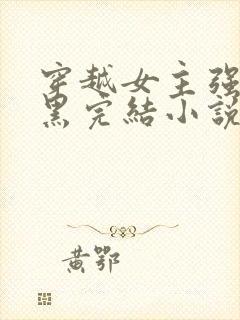 穿越女主强
黑完結小說
黄鄂